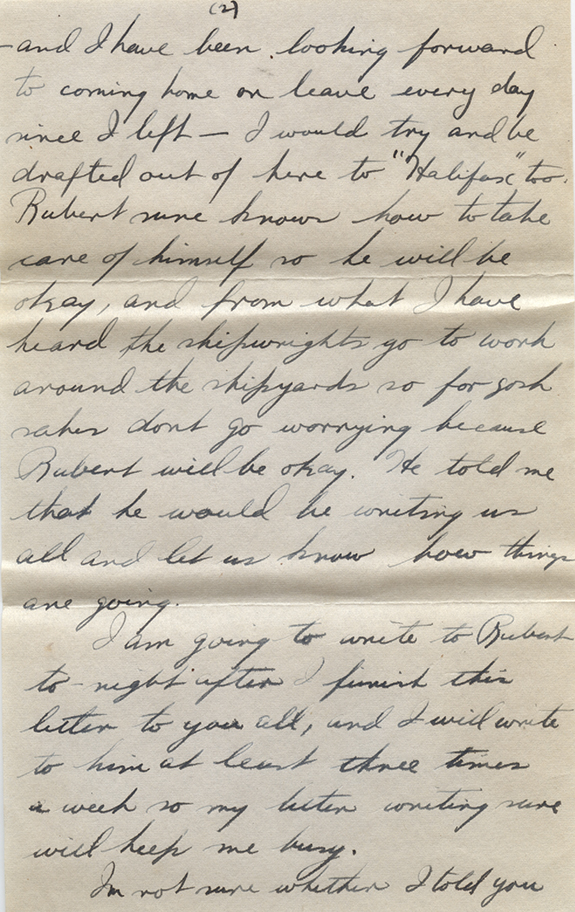 (2)
-and I have been looking forward
to coming home on leave every day
since I left - I would try and be
drafted out of here to "Halifax" too.
Rubert sure knows how to take
care of himself so he will be
okay, and from what I have
heard the shipwrights go to work
around the shipyards so for gosh
sakes dont go worrying because
Rubert will be okay. He told me
that he would be writing us
all and let us know how things
are going.
I am going to write to Rubert
to-night after I finish this
letter to you all, and I will write
to him at least three times
a week so my letter writing sure
will keep me busy.
Im not sure whether I told you